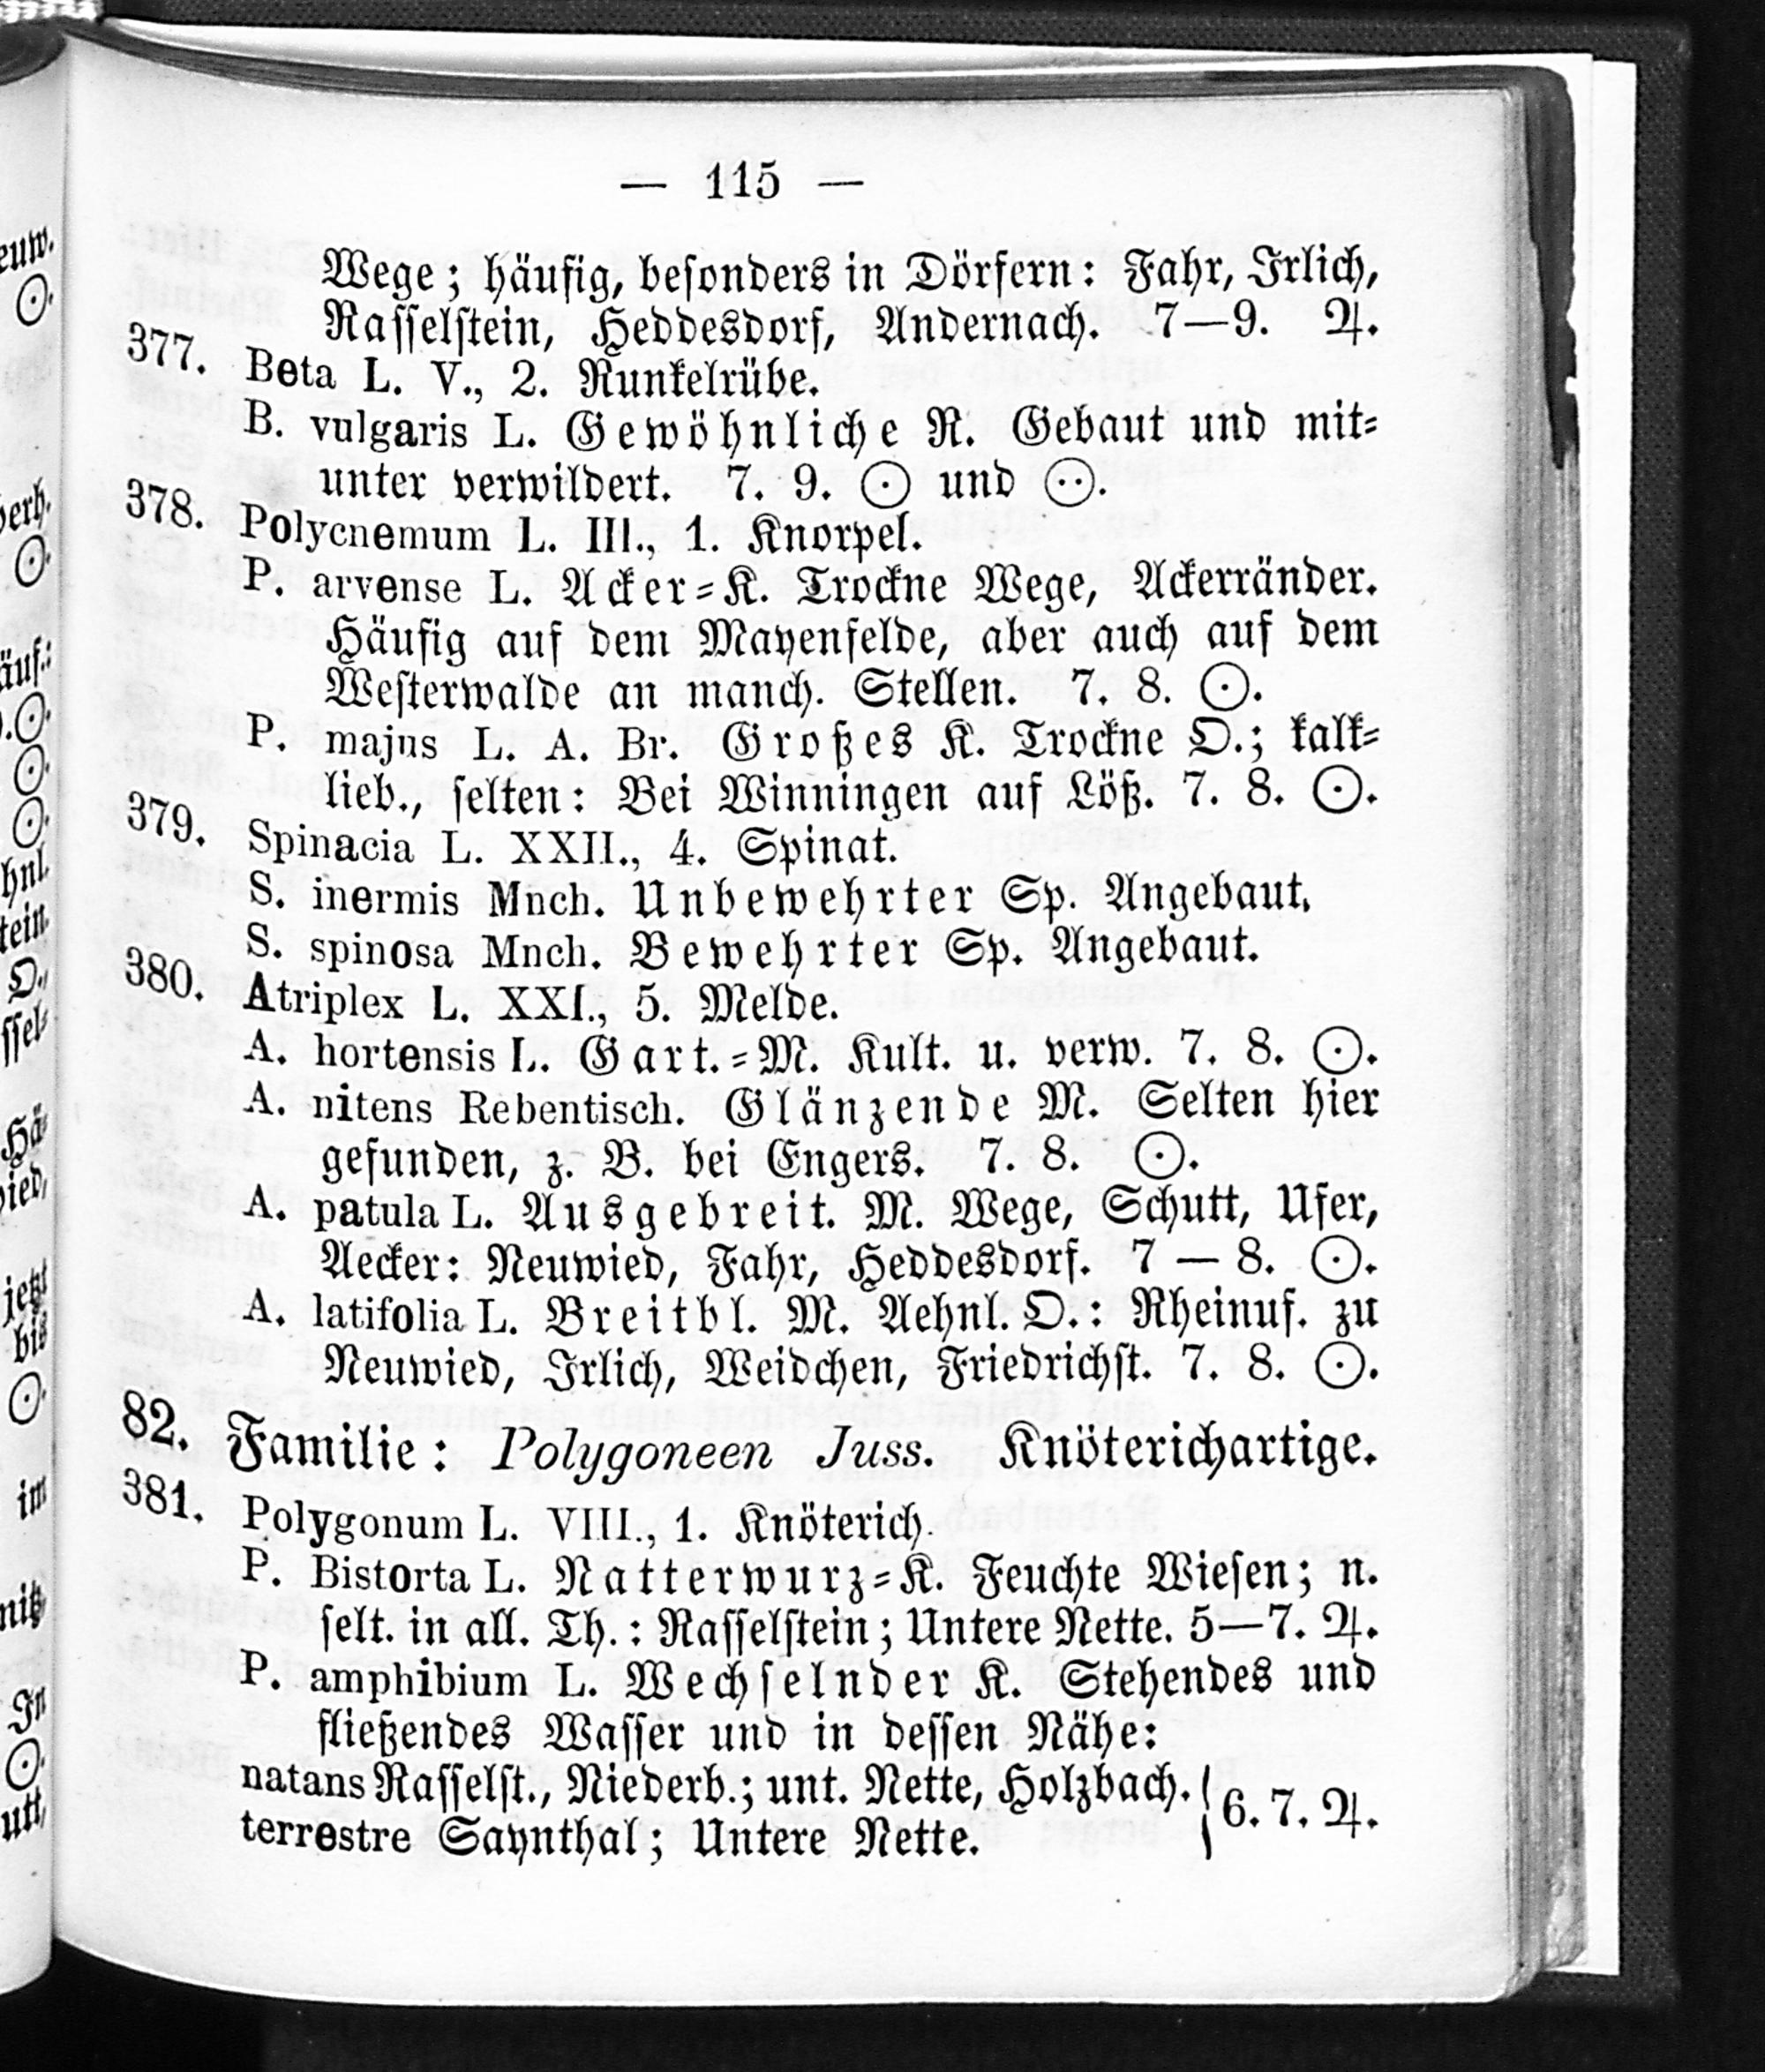 — 115 —
Wege; häufig, besonders in Dörfern: Fahr, Irlich,
Rasselstein, Heddesdorf, Andernach. 7—9. ♃.
377. Beta L. V., 2. Runkelrübe.
B. vulgaris L. Gewöhnliche R. Gebaut und mit-
unter verwildert. 7. 9. ⊙ und ⚇.
378. Polycnemum L. III., 1. Knorpel.
P. arvense L. Acker-K. Trockne Wege, Ackerränder.
Häufig auf dem Mayenfelde, aber auch auf dem
Westerwalde an manch. Stellen. 7. 8. ⊙.
P. majus L. A. Br. Großes K. Trockne O.; kalk-
lieb., selten: Bei Winningen auf Löß. 7. 8. ⊙.
379. Spinacia L. XXII., 4. Spinat.
S. inermis Mnch. Unbewehrter Sp. Angebaut.
S. spinosa Mnch. Bewehrter Sp. Angebaut.
380. Atriplex L. XXI., 5. Melde.
A. hortensis L. Gart.-M. Kult. u. verw. 7. 8. ⊙.
A. nitens Rebentisch. Glänzende M. Selten hier
gefunden, z. B. bei Engers. 7. 8. ⊙.
A. patula L. Ausgebreit. M. Wege, Schutt, Ufer,
Aecker: Neuwied, Fahr, Heddesdorf. 7 — 8. ⊙.
A. latifolia L. Breitbl. M. Aehnl. O.: Rheinuf. zu
Neuwied, Irlich, Weidchen, Friedrichst. 7. 8. ⊙.
82. Familie: Polygoneen Juss. Knöterichartige.
381. Polygonum L. VIII., 1. Knöterich.
P. Bistorta L. Natterwurz-K. Feuchte Wiesen; n.
selt. in all. Th.: Rasselstein; Untere Nette. 5—7. ♃.
P. amphibium L. Wechselnder K. Stehendes und
fließendes Wasser und in dessen Nähe:
natans Rasselst., Niederb.; unt. Nette, Holzbach. } 6. 7. ♃.
terrestre Saynthal; Untere Nette.